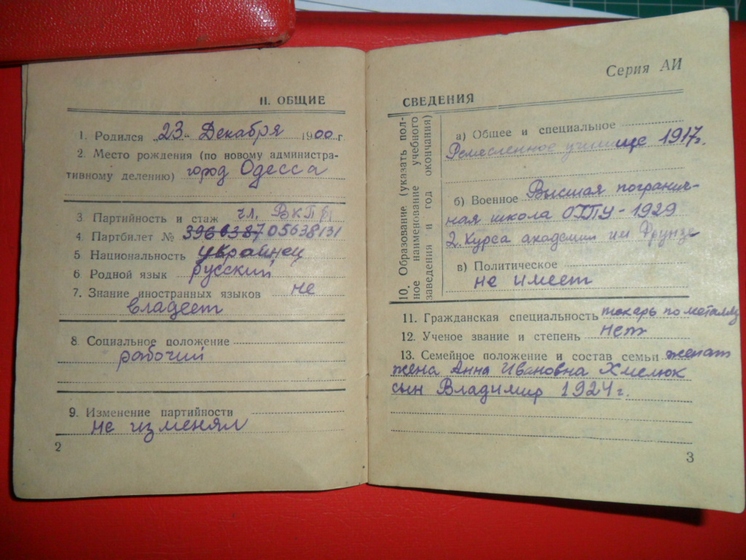 II. ОБЩИЕ
1. Родился 23 Декабря 1900 г
2. Место рождения (по новому администра-
тивному делению) город Одесса
3 Партийность и стаж чл. ВКП(б)
4 Партбилет № 3960387 05638131
5 Национальность украинец
6 Родной язык русский
7. Знание иностранных языков не
владеет
8. Социальное положение
рабочий
9. Изменение партийности
не изменял
2
Серия АИ
СВЕДЕНИЯ
10. Образование (указать пол-
ное наименование учебного
заведения и год окончания)
а) Общее и специальное
Ремесленное училище 1917г.
б) Военное Высшая погранич-
ная школа ОГПУ - 1929
2 Курса академии им Фрунзе
в) Политическое
не имеет
11. Гражданская специальность токарь по металлу
12. Ученое звание и степень нет
13. Семейное положение и состав семьи женат
жена Анна Ивановна Хмелюк
сын Владимир 1924 г.
3